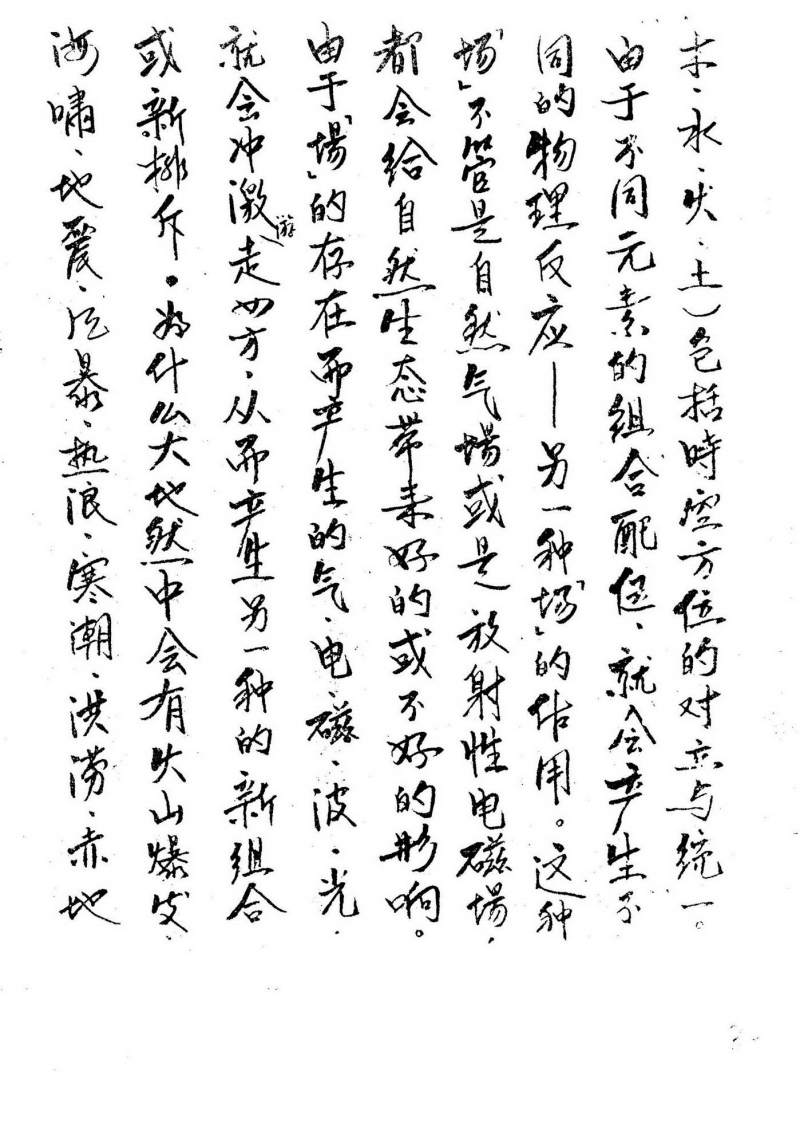 木、水、火、土）包括時空方位的对立与统一。
由于不同元素的组合配伍、就会产生不
同的物理反应——另一种「场」的作用。这种
「场」不管是自然气場或是放射性电磁場，
都会给自然生态带来好的或不好的影响。
由于「場」的存在而产生的气、电、磁、波、光、
就会冲激游走四方、从而产生另一种的新组合
或新排斥。为什么大地然中会有火山爆发、
海啸、地震、风暴、热浪、寒潮、洪涝、赤地